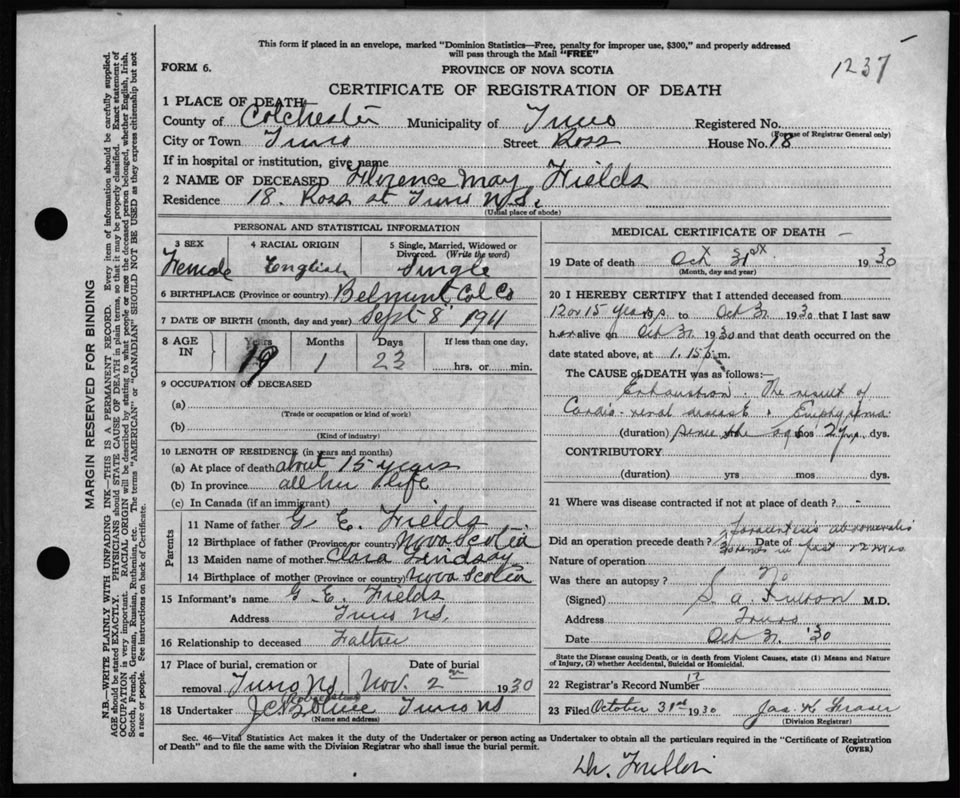 This form if placed in an envelope, marked "Dominion Statistics—Free, penalty for improper use, $300," and properly addressed
will pass through the Mail "FREE"
1237
FORM 6.
PROVINCE OF NOVA SCOTIA
CERTIFICATE OF REGISTRATION OF DEATH
1 PLACE OF DEATH
County of Colchester Municipality of Truro Registered No.
(For use of Registrar General only)
City or Town Truro Street Ross House No. 18
If in hospital or institution, give name
2 NAME OF DECEASED Florence May Fields
Residence 18. Ross st Truro N.S.
(Usual place of abode)
PERSONAL AND STATISTICAL INFORMATION
3 SEX 4 RACIAL ORIGIN 5 Single, Married, Widowed or
Divorced. (Write the word)
Female English Single
6 BIRTHPLACE (Province or country) Belmont, Col Co
7 DATE OF BIRTH (month, day and year) Sept 8 1911
8 AGE IN Years Months Days If less than one day,
19 1 23 hrs. or min.
9 OCCUPATION OF DECEASED
(a)
(Trade or occupation or kind of work)
(b)
(Kind of industry)
10 LENGTH OF RESIDENCE (in years and months)
(a) At place of death about 15 years
(b) In province all her life
(c) In Canada (if an immigrant)
Parents
11 Name of father G. E. Fields
12 Birthplace of father (Province or country) Nova Scotia
13 Maiden name of mother Clara Lindsay
14 Birthplace of mother (Province or country) Nova Scotia
15 Informant's name G. E. Fields
Address Truro NS.
16 Relationship to deceased Father
17 Place of burial, cremation or Date of burial
removal Truro NS Nov. 2nd 1930
18 Undertaker J.C. Truro NS
(Name and address)
MEDICAL CERTIFICATE OF DEATH
19 Date of death Oct 31st 1930
(Month, day and year)
20 I HEREBY CERTIFY that I attended deceased from
12 or 15 years to Oct 31 1930 that I last saw
her alive on Oct 31 1930 and that death occurred on the
date stated above, at 1.15 p.m.
The CAUSE of DEATH was as follows:—
Exhaustion. The result of
Cardio-renal disease.
(duration) since the age of 2 yrs. dys.
CONTRIBUTORY
(duration) yrs mos dys.
21 Where was disease contracted if not at place of death?
Did an operation precede death? Date of
Paracentesis abdominalis
in past 12 mos
Nature of operation
Was there an autopsy? No
(Signed) S. A. Fulton M.D.
Address Truro
Date Oct 31 '30
State the Disease causing Death, or in death from Violent Causes, state (1) Means and Nature
of Injury, (2) whether Accidental, Suicidal or Homicidal.
22 Registrar's Record Number
23 Filed October 31st 1930 Jas. K Fraser
(Division Registrar)
Sec. 46—Vital Statistics Act makes it the duty of the Undertaker or person acting as Undertaker to obtain all the particulars required in the "Certificate of Registration
of Death" and to file the same with the Division Registrar who shall issue the burial permit. (OVER)
MARGIN RESERVED FOR BINDING
N.B.—WRITE PLAINLY WITH UNFADING INK—THIS IS A PERMANENT RECORD. Every item of information should be carefully supplied.
AGE should be stated EXACTLY. PHYSICIANS should STATE CAUSE OF DEATH in plain terms, so that it may be properly classified. Exact statement of
OCCUPATION is very important. RACIAL ORIGIN will be described by stating to what people or race the deceased person belonged, whether English, Irish,
Scotch, French, German, Russian, Ruthenian, etc. The terms "AMERICAN" or "CANADIAN" SHOULD NOT BE USED as they express citizenship but not
a race or people. See instructions on back of Certificate.